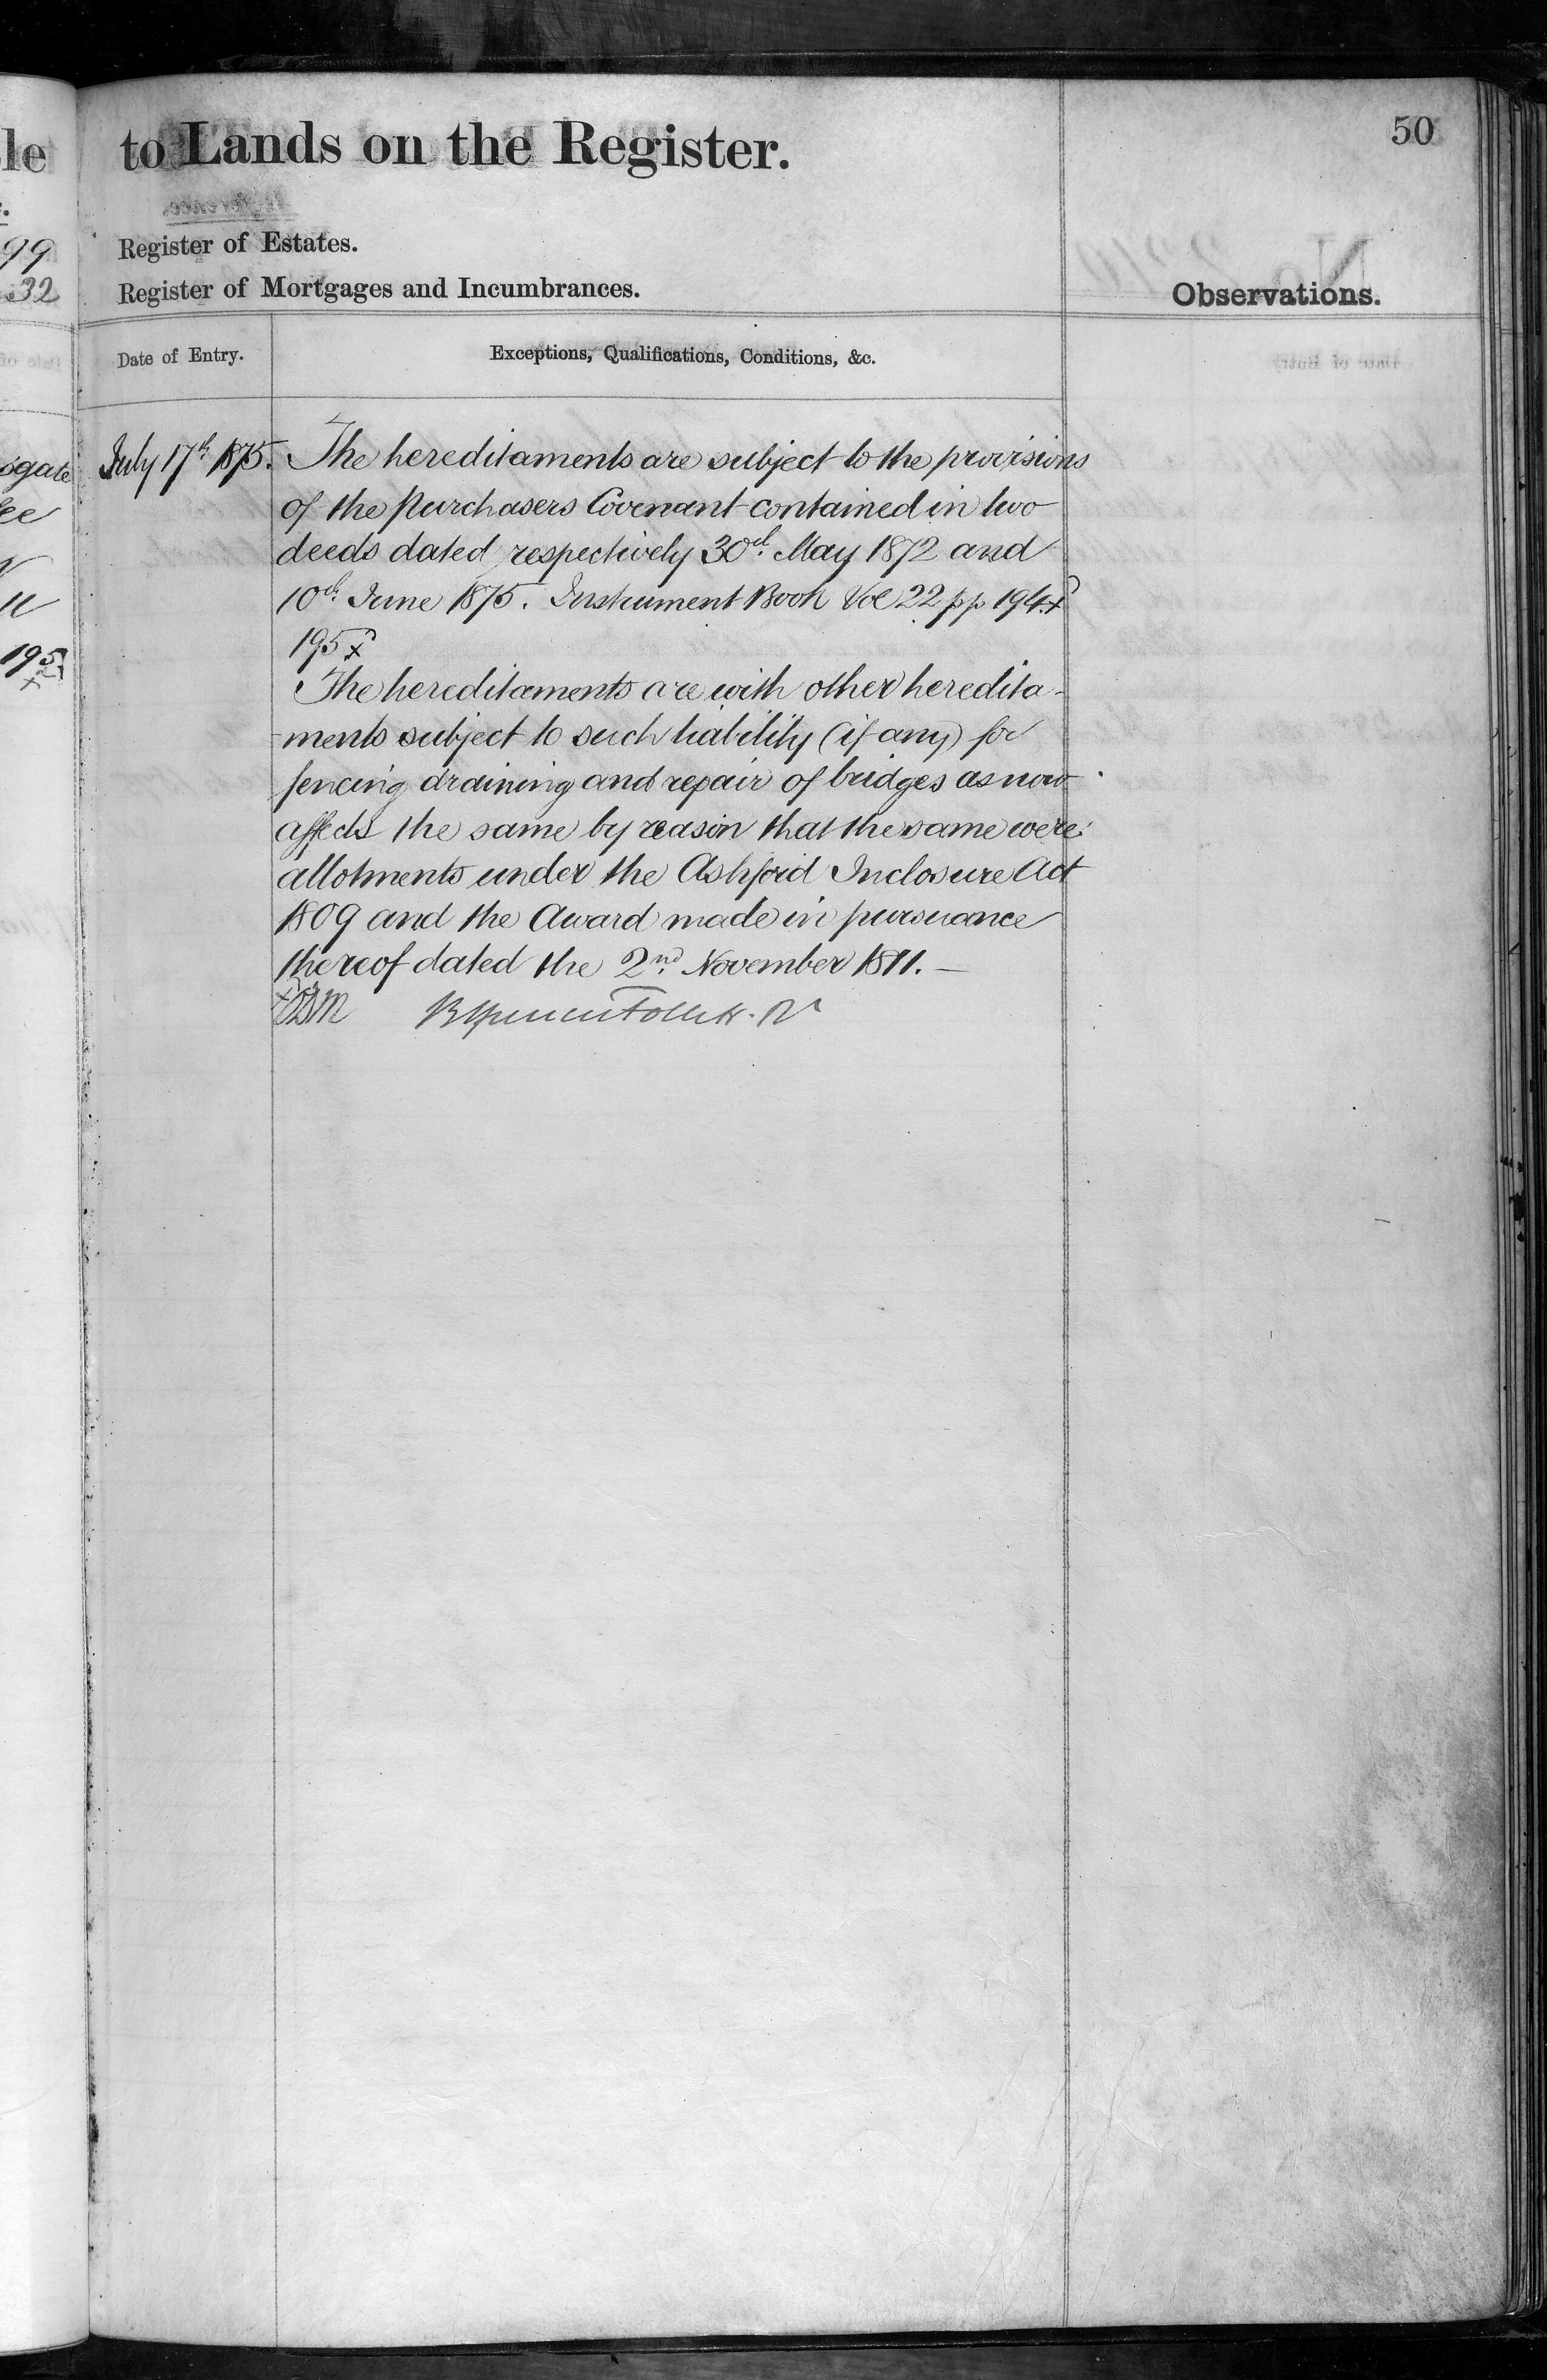 to Lands on the Register.
50
Register of Estates.
Register of Mortgages and Incumbrances.
Observations.
Date of Entry.
Exceptions, Qualifications, Conditions, &c.
July 17th 1875.
The hereditaments are subject to the provisions
of the purchasers Covenant contained in two
deeds dated respectively 30th May 1872 and
10th June 1875. Instrument Book Vol 22 pp 194 x
195 x
The hereditaments are with other heredita-
-ments subject to such liability (if any) for
fencing draining and repair of bridges as now
affects the same by reason that the same were
allotments under the Ashford Inclosure Act
1809 and the Award made in pursuance
thereof dated the 2nd November 1811. —
le
99
32
ogate
195